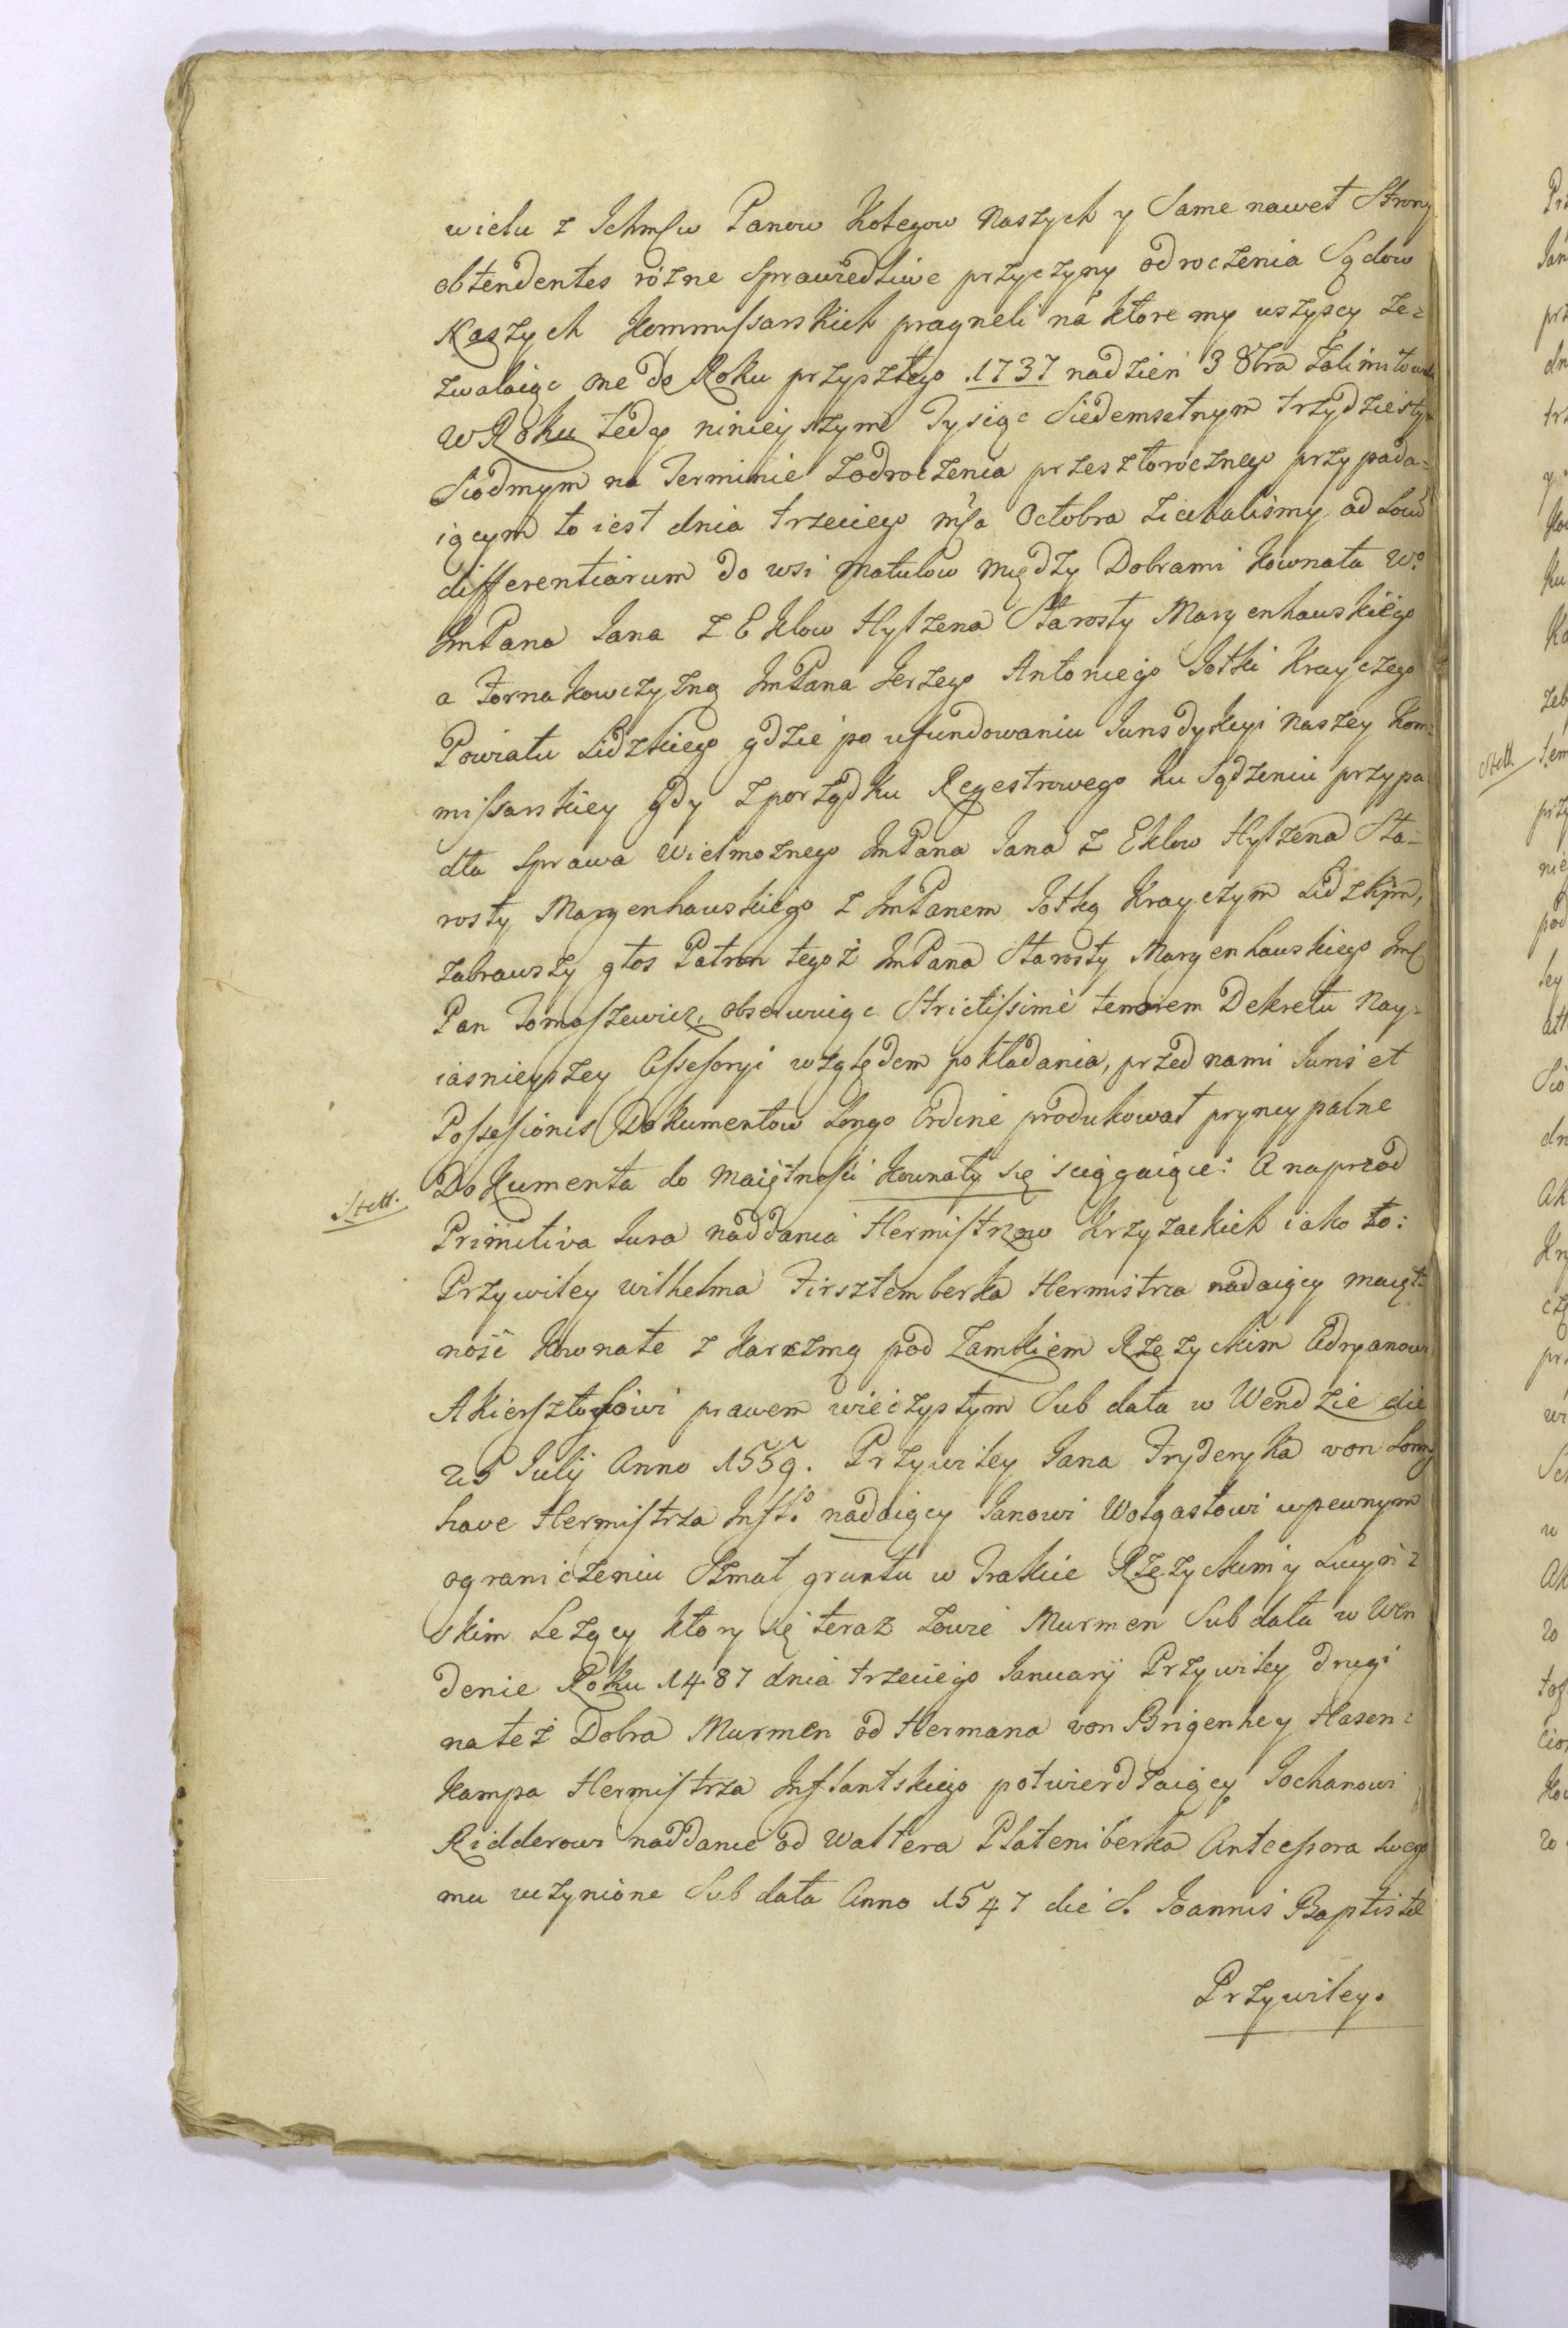 wielu z Ichmſw Panow Kolegow Naszych y Same nawet Strony
obtendentes rózne Sprawiedliwe przyczyny odroczenia Sądow
Naszych Kommiſsarskich pragneli na ktore my wszyscy ze=
zwalaiąc one do Roku przyszłego 1737 nadzien 3 8bra
W Roku tedy ninieyszym Tysiąc Siedemsetnym trzydziestym
Siodmym na Terminie zodroczenia przeszłorocznego przypada=
iącym to iest dnia trzeciego mſca Octobra ziechaliśmy ad Locum
differentiarum do wsi Matulow między Dobrami Kownata Wo
JmPana Jana Z Eklow Hylzena Starosty Maryenhauskiego
a Tornakowczyzną JmPana Jerzego Antoniego Sołki Krayczego
Powiatu Lidzkiego gdzie po ufundowaniu Jurisdykcyi naszey Kom=
miſsarskiey gdy z porządku Regestrowego ku Sądzeniu przypa
dła Sprawa Wielmoznego JmPana Jana Z Eklow Hylzena Sta=
rosty Maryenhauskiego z JmPanem Sołką Krayczym Lidzkim,
zabrawszy głos Patron tegoż JmPana Starosty Maryenhauskiego Jmſ
Pan Tomaſzewicz, obserwuiąc Strictiſsime tenorem Dekretu Nay=
iasnieyszey Aſseſsoryi względem pokładania, przed nami Juris et
Poſseſsionis Dokumentow Longo Ordine produkował pryncypalne
Stett. Dokumenta do maiętnoſci Kownaty się sciągaiące: A naprzod
Primitiva Jura naddania Hermiſtrzow Krzyzackich iako to:
Przywiley Wilhelma Firsztemberka Hermistrza nadaiący maięt=
ność Kownate z Karczmą pod Zamkiem Rzezyckim Adryanowi
Akierſztoffowi prawem wieczystym Sub data w Wendzie die
25 Julij Anno 1559. Przywiley Jana Fryderyka von
have Hermiſtrza Inflo nadaiący Janowi Wolgastowi wpewnym
ograniczeniu Szmat gruntu w Trakcie Rzezyckim y Lucyń=
skim Lezący ktory się teraz zowie Murmen Sub data w Wen
denie Roku 1487 dnia trzeciego Januarij Przywiley drugi
nateż Dobra Murmen od Hermana von Brigenhey Hasen=
kampa Hermiſtrza Inflantskiego potwierdzaiący Jochanowi
Ridderowi naddanie od Waltera Plateniberka Anteceſsora Swego
mu uczynione Sub data Anno 1547 die S. Joannis Baptistæ
Przywiley.
Stett